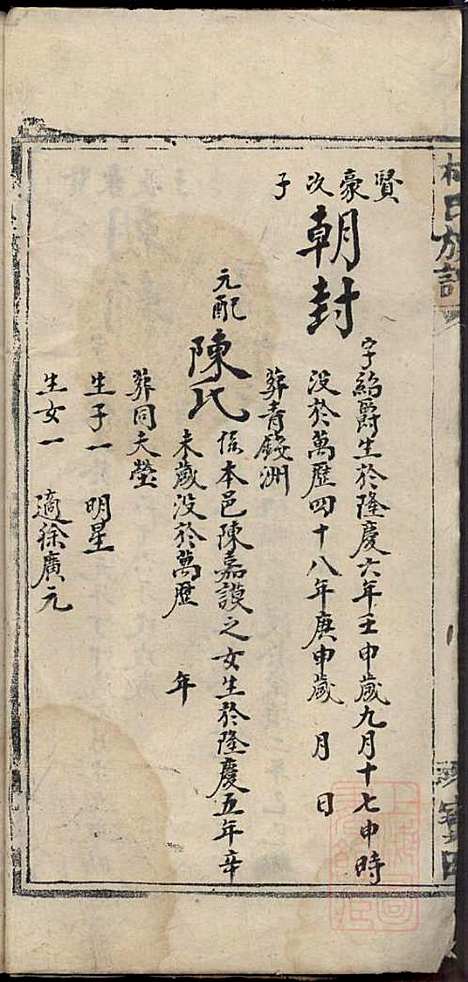 賢豪次子
朝封
字絈爵生於隆慶六年壬申歲九月十七申時
没於萬歷四十八年庚申歲 月 日
葬青錢洲
元配
陳氏
係本邑陳嘉謨之女生於隆慶五年辛
未歲没於萬歷 年
葬同夫塋
生子一 明星
生女一 適徐廣元
氏族譜